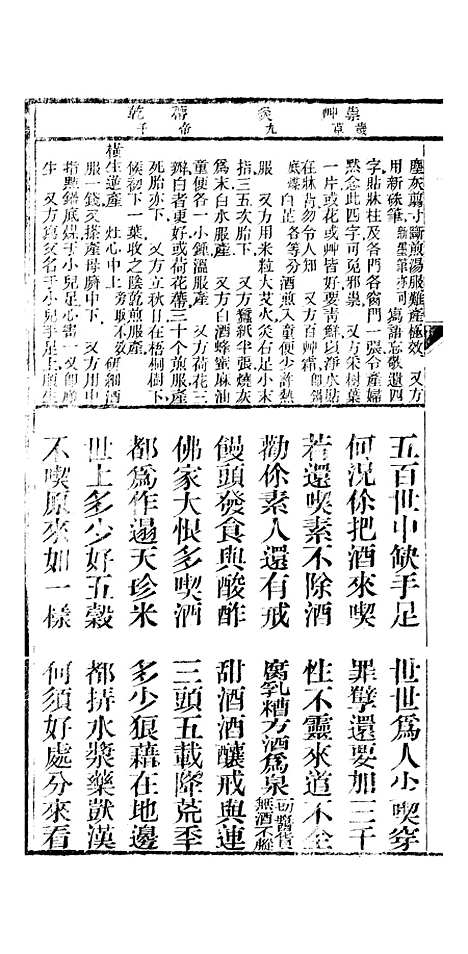 祟歲 艸草 炙九 薺帝 乾子
塵灰剪寸斷煎湯服難產極效 又方
用新硃筆新墨筆亦可寫語忘敬遺四
字貼牀柱及各門各窗門一張令產婦
黙念此四字可免邪祟 又方采樹葉
一片或花或艸皆好要青鮮以淨水貼
在牀背勿令人知 又方百艸霜即鍋
底煤白芷各等分酒煎入童便少許熱
服 又方用米粒大艾火灸右足小末
指三五次胎下 又方蠶紙半張燒灰
爲末白水服產 又方白酒蜂蜜麻油
童便各一小鍾溫服產 又方荷花三
辦白者更好或荷花蒂三十个煎服產
死胎亦下 又方立秋日在梧桐樹下
候初下一葉收之陰乾煎服
橫生逆產 灶心中土 研細酒
服一錢又搽產母臍中下 又方用中
指點鍋底煤于小兒足心書一
生 又方寫父名于小兒手足上順生
五百世中缺手足 世世爲人少喫穿
何況你把酒來喫 罪孽還要加三千
若還喫素不除酒 性不靈來道不全
勸你素人還有戒 腐乳糟方酒爲泉切醬貨無酒不
饅頭發食與酸酢 甜酒酒釀戒與連
佛家大恨多喫酒 三頭五載降荒季
都爲作遏天珍米 多少狼藉在地邊
世上多少好五穀 都拚水漿藥獃漢
不喫原來如一樣 何須好處分來看